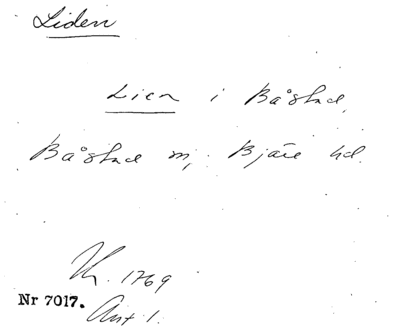 Liden
Lien i Båstad,
Båstad m, Bjäre hd.
1769
Nr 7017.
Akt 1.